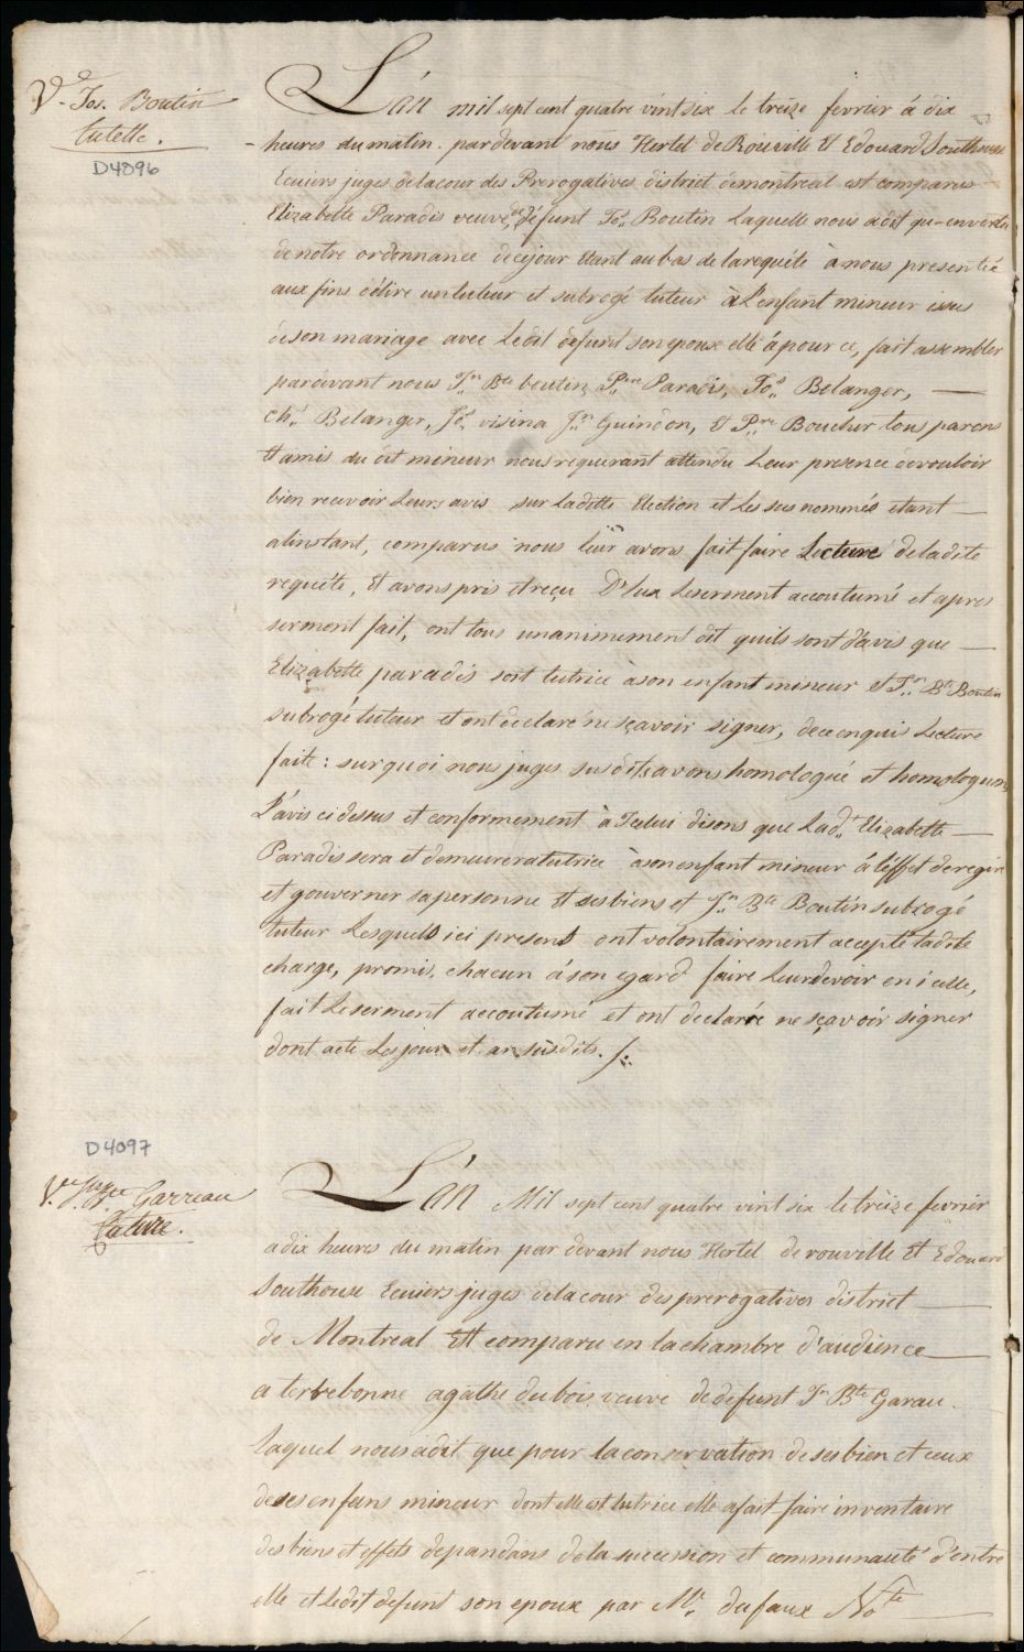 Ve. Jos. Boutin
tutelle.
D4096
L'an mil sept cent quatre vint six le treize fevrier á dix
heures du matin. pardevant nous Hertel de Rouville Et Edouard Southouse
Ecuiers juges delacour des Prerogatives district demontreal est comparus
Elizabette Paradis veuve de défunt Jos. Boutin Laquelle nous adit qu-en vertu
denotre ordonnance decejour Etant au bas de larequéte à nous presentée
aux fins d'élire untuteur et subrogé tuteur à L'enfant mineur issus
deson mariage avec Ledit defunt son epoux elle á pour ce, fait assembler
pardevant nous Jn. Bte boutin, Pre Paradis, Jos. Belanger,
chs. Belanger, Js. visina Jn. Guindon, & Pre Boucher tous parens
Et amis du dit mineur nous requerant attendu Leur presence devouloir
bien recevoir Leurs avis sur Ladette Election et Les sus nommés etant
alinstant, comparus nous leur avons fait faire Lecture deladite
requéte, Et avons pris et reçu D'Eux Leserment accoutumé et apres
serment fait, ont tous unanimement dit quils sont d'avis que
Elizabette paradis soit tutrice àson enfant mineur et Jn. Bte Boutin
subrogé tuteur et ont declaré ne sçavoir signer, dece enquis Lecture
faite: surquoi nous juges susdits avons homologué et homologuons
L'avis ci dessus et conformement à Icelui disons que Lad.t Elizabette
Paradis sera et demeurera tutrice àson enfant mineur á l'éffet deregir
et gouverner sapersonne Et ses biens et Jn. Bte Boutin subrogé
tuteur Lesquels ici present ont volontairement accepté ladite
charge, promis, chacun á son egard faire Leurdevoir en icelle,
fait Leserment accoutumé et ont declarée ne sçavoir signer
dont acte Les jour et an susdits.
D4097
Ve. Jn Bte Garreau
Cloture.
L'an Mil sept cent quatre vint six le treize fevrier
adix heures du matin par devant nous Hertel de rouville Et Edouard
Southouse Ecuiers juges delacour des prerogatives district
de Montreal Est comparu en lachambre d'audience
a terrebonne agathe dubois veuve dedefunt Jn Bte Garau
laquel nous adit que pour laconservation de ses bien et ceux
desesenfans mineur dont elle est tutrice elle afait faire inventaire
des biens et effets depandans dela succession et communauté d'entre
elle et ledit defunt son epoux par Mr. dufaux Note